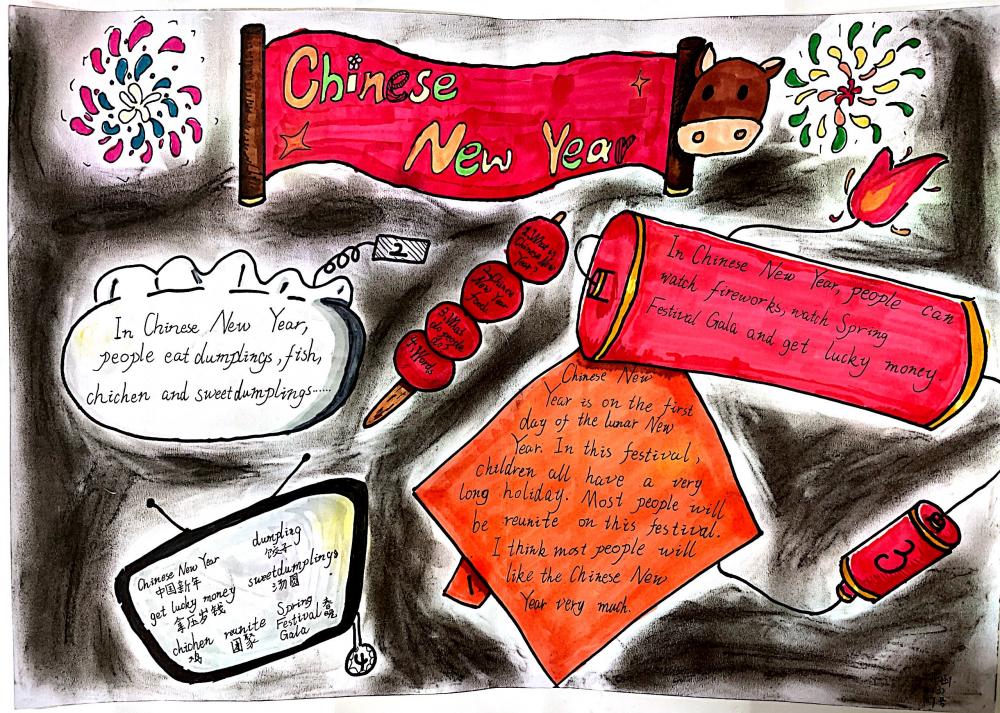 Chinese
New Year
2
In Chinese New Year,
people eat dumplings, fish,
chichen and sweetdumplings......
1. What is
Chinese New
Year?
2. Chinese
New Year
food.
3. What
do people
do?
4. Words
In Chinese New Year, people can
watch fireworks, watch Spring
Festival Gala and get lucky money.
3
Chinese New
Year is on the first
day of the lunar New
Year. In this festival,
children all have a very
long holiday. Most people will
be reunite on this festival.
I think most people will
like the Chinese New
Year very much.
1
Chinese New Year
中国新年
get lucky money
拿压岁钱
chichen
鸡
dumpling
饺子
sweetdumplings
汤圆
reunite
团聚
Spring
Festival
Gala
春晚
4